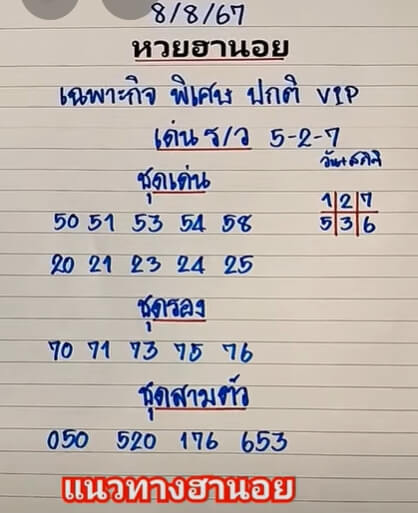 8/8/67
หวยฮานอย
เฉพาะกิจ พิเศษ ปกติ VIP
เด่น ร/ว 5-2-7
วันสถิติ
ชุดเด่น
1 2 7
50 51 53 54 58
5 3 6
20 21 23 24 25
ชุดรอง
70 71 73 75 76
ชุดสามตัว
050 520 176 653
แนวทางฮานอย